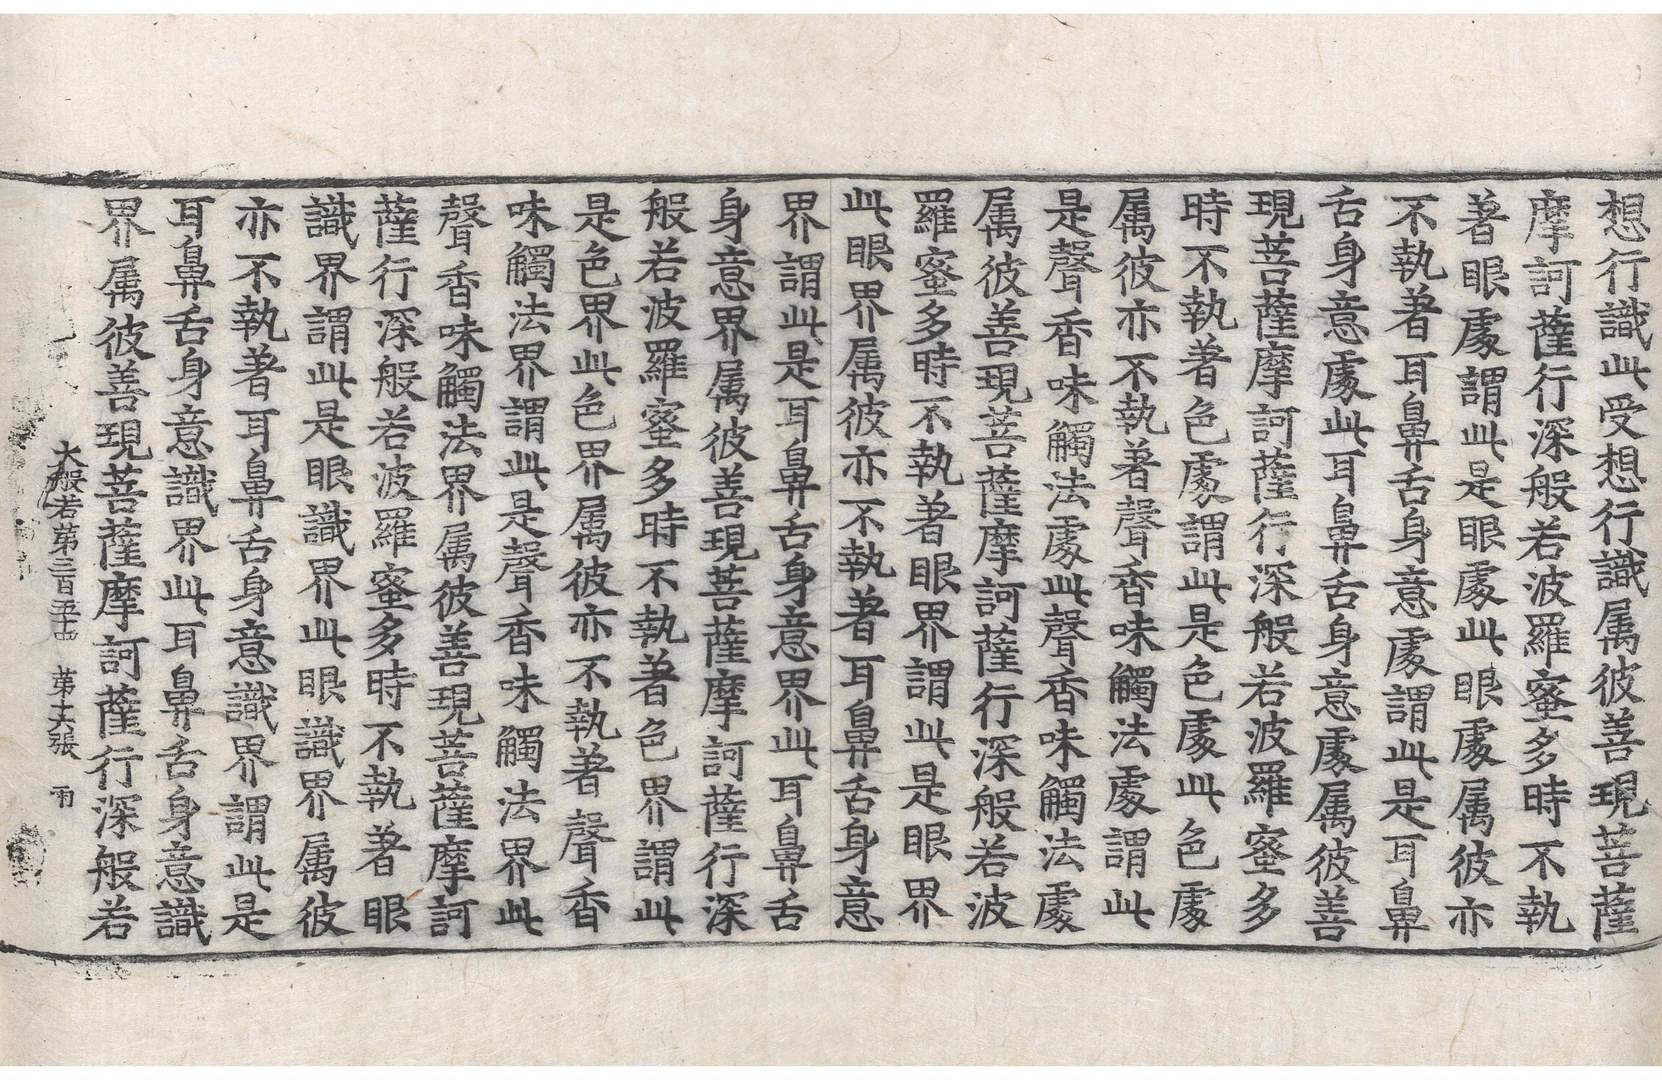 想行識此受想行識属彼善現菩薩
摩訶薩行深般若波羅蜜多時不執
著眼處謂此是眼處此眼處属彼亦
不執著耳鼻舌身意處謂此是耳鼻
舌身意處此耳鼻舌身意處属彼善
現菩薩摩訶薩行深般若波羅蜜多
時不執著色處謂此是色處此色處
属彼亦不執著聲香味觸法處謂此
是聲香味觸法處此聲香味觸法處
属彼善現菩薩摩訶薩行深般若波
羅蜜多時不執著眼界謂此是眼界
此眼界属彼亦不執著耳鼻舌身意
界謂此是耳鼻舌身意界此耳鼻舌
身意界属彼善現菩薩摩訶薩行深
般若波羅蜜多時不執著色界謂此
是色界此色界属彼亦不執著聲香
味觸法界謂此是聲香味觸法界此
聲香味觸法界属彼善現菩薩摩訶
薩行深般若波羅蜜多時不執著眼
識界謂此是眼識界此眼識界属彼
亦不執著耳鼻舌身意識界謂此是
耳鼻舌身意識界此耳鼻舌身意識
界属彼善現菩薩摩訶薩行深般若
大般若第三百五十四 第十六張 雨